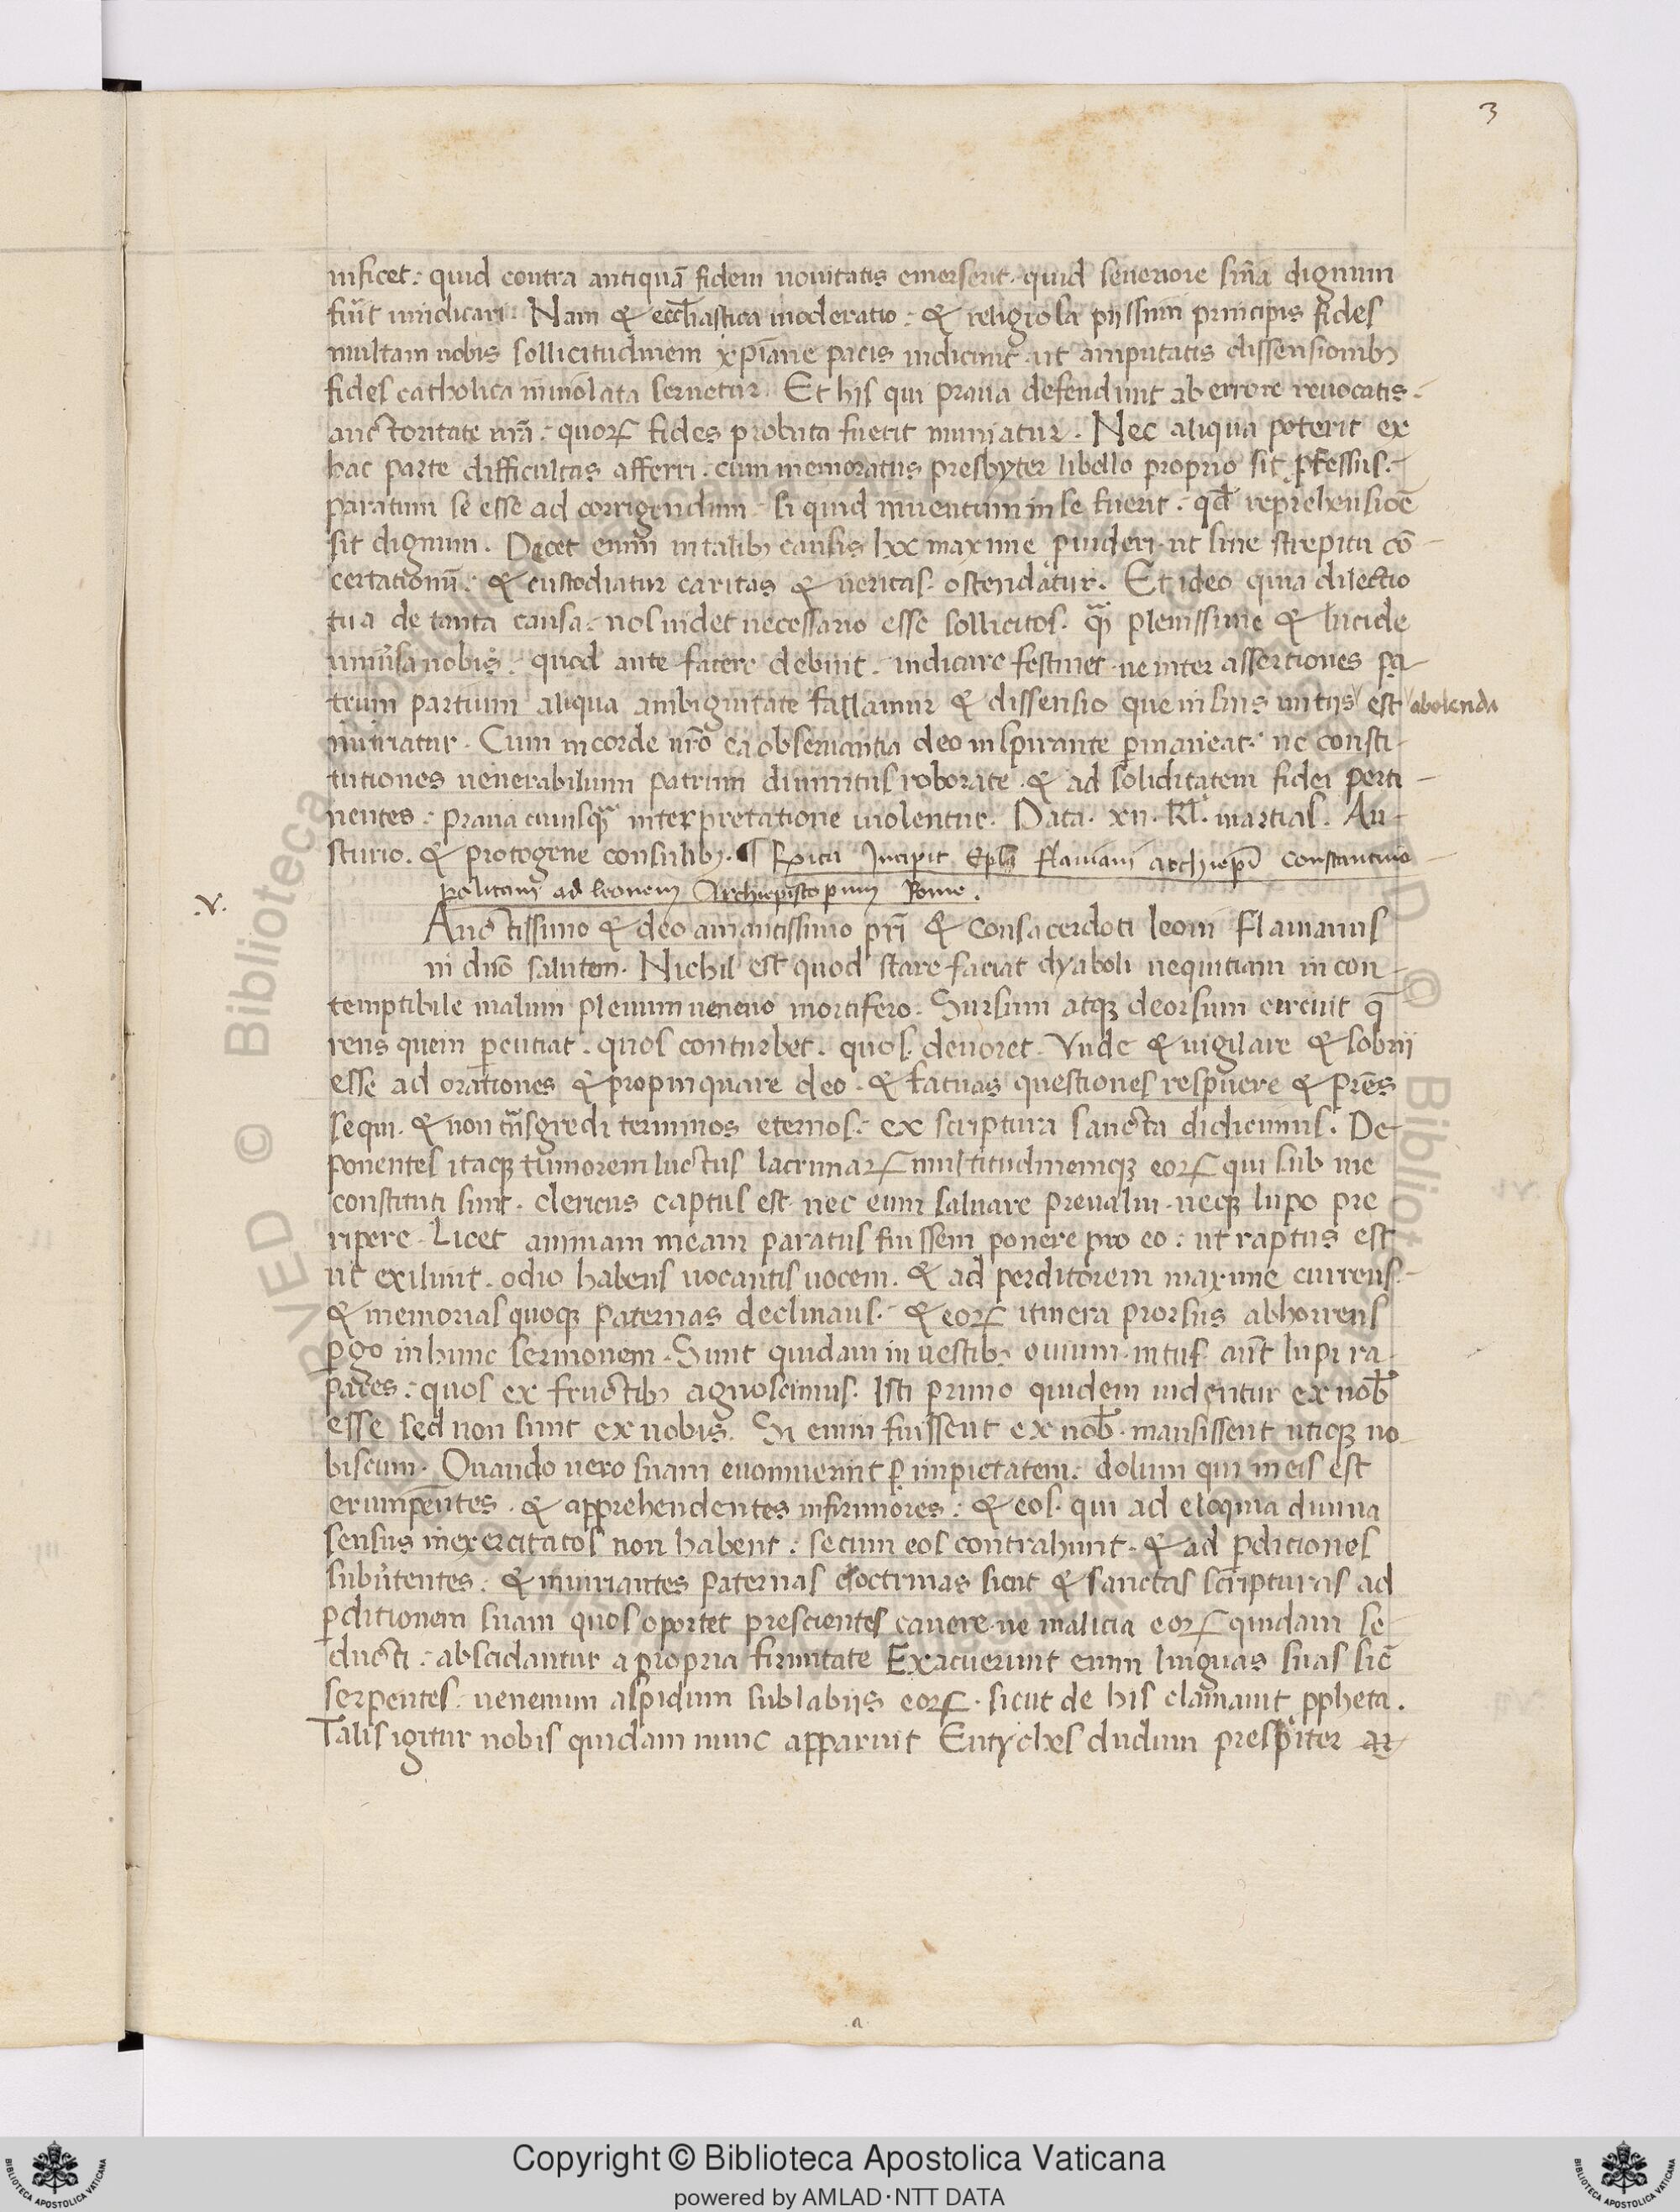 3
nificet: quid contra antiquā fidem nouitatis emerserit. quid seueriore sn̄ia dignum
fūit iudicari. Nam & ecc̄liastica moderatio: & religiosa pijssimi principis fides
multam nobis sollicitudinem xp̄iane pacis indicunt. ut amputatis dissensionibꝫ
fides catholica inuiolata seruetur. Et his qui praua defendunt ab errore reuocatis.
auctoritate nr̄a: quoꝝ fides probata fuerit muniatur. Nec aliqua poterit ex
hac parte difficultas afferri. cum memoratus presbyter libello proprio sit ꝓfessus.
paratum se esse ad corrigendum. si quid inuentum in se fuerit. qd̄ reprehensiōe
sit dignum. Decet enim in talibꝫ causis hec maxime ꝓuideri. ut sine strepitu cō-
certationū: & custodiatur caritas & ueritas. ostendatur. Et ideo quia dilectio
tua de tanta causa. nos uidet necessario esse sollicitos. q̄ꝫ plenissime & lucide
uniūsa nobis. quod ante facere debuit. indicare festinet. ne inter assertiones ꝑ-
trum partium aliqua ambiguitate fallamur & dissensio que in suis initijs est abolenda
nutriatur. Cum in corde nr̄o ea obseruantia deo inspirante ꝑmaneat. ne consti-
tutiones uenerabilium patrum diuinitus roborate. & ad soliditatem fidei perti-
nentes: praua cuiusꝗ interpretatione uiolentur. Data. xii. Kl̄. martias. Au-
sturio. & protogene consulibꝫ. ¶ Explicit Incipit Epl̄a flauiani archiepī constantino-
politani ad leonem Archiepiscopum Rome.
.V.
Auctissimo & deo amantissimo pr̄i & consacerdoti leoni Flauianus
in dn̄o salutem. Nichil est quod stare faciat dyaboli nequitiam in con-
temptibile malum plenum ueneno mortifero. Sursum atqꝫ deorsum circuit q̄-
rens quem ꝑcutiat. quos conturbet. quos. deuoret. Vnde & uigilare & sobrij
esse ad orationes & propinquare deo. & fatuas questiones respuere & pr̄es
sequi. & non trāsgredi terminos eternos. ex scriptura sancta didicimus. De-
ponentes itaqꝫ timorem luctus lacrimaꝝ multitudinemqꝫ eoꝝ qui sub me
constituti sunt. clericus captus est. nec eum saluare preualui. neqꝫ lupo pre
ripere. Licet animam meam paratus fuissem ponere pro eo: ut raptus est
ut exiliuit. odio habens uocantis uocem. & ad perditorem maxime currens.
& memorias quoqꝫ paternas declinans. & eoꝝ itinera prorsus abhorrens
ꝑgo in hunc sermonem. Sunt quidam in uestibꝫ ouium. intus aūt lupi ra-
paces: quos ex fructibꝫ agnoscimus. Isti primo quidem uidentur ex nob̄
esse sed non sunt ex nobis. Si enim fuissent ex nob̄. mansissent utiqꝫ no
biscum. Quando uero suam euomuerint ꝑ impietatem: dolum qui in eis est
erumpentes. & apprehendentes infirmiores: & eos. qui ad eloquia diuina
sensus inexercitatos non habent: secum eos contrahunt. & ad ꝑditiones
subūtentes: & iniuriantes paternas doctrinas sicut & sanctas scripturas ad
ꝑditionem suam quos oportet prescientes cauere. ne malicia eoꝝ quidam se-
ducti: abscidantur a propria firmitate Exacuerunt enim linguas suas sic̄
serpentes: uenenum aspidum sub labijs eoꝝ. sicut de his clamauit ꝓpheta.
Talis igitur nobis quidam nunc apparuit Eutyches dudum presbiter ar-
a
Copyright © Biblioteca Apostolica Vaticana
powered by AMLAD·NTT DATA